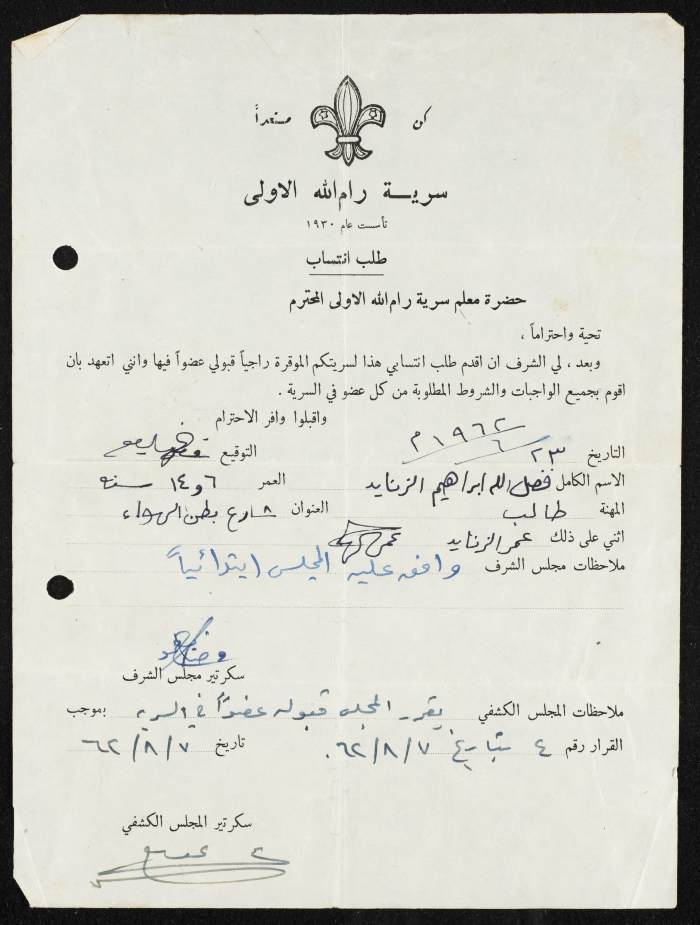 كن مستعداً
سرية رام الله الاولى
تأسست عام ١٩٣٠
طلب انتساب
حضرة معلم سرية رام الله الاولى المحترم
تحية واحتراماً ،
وبعد ، لي الشرف ان اقدم طلب انتسابي هذا لسريتكم الموقرة راجياً قبولي عضواً فيها وانني اتعهد بان
اقوم بجميع الواجبات والشروط المطلوبة من كل عضو في السرية .
واقبلوا وافر الاحترام
التاريخ ٢٣ / ٦ / ١٩٦٢ م التوقيع
الاسم الكامل فضل الله ابراهيم الزنايد العمر ١٤ سنه
المهنة طالب العنوان شارع بطن الهواء
اثني على ذلك عمر الزنايد
ملاحظات مجلس الشرف وافق عليه المجلس ابتدائياً
سكرتير مجلس الشرف
ملاحظات المجلس الكشفي يقرر المجلس قبوله عضواً في السريه بموجب
القرار رقم ٤ بتاريخ ٦٢/٨/٧. تاريخ ٦٢/٨/٧
سكرتير المجلس الكشفي